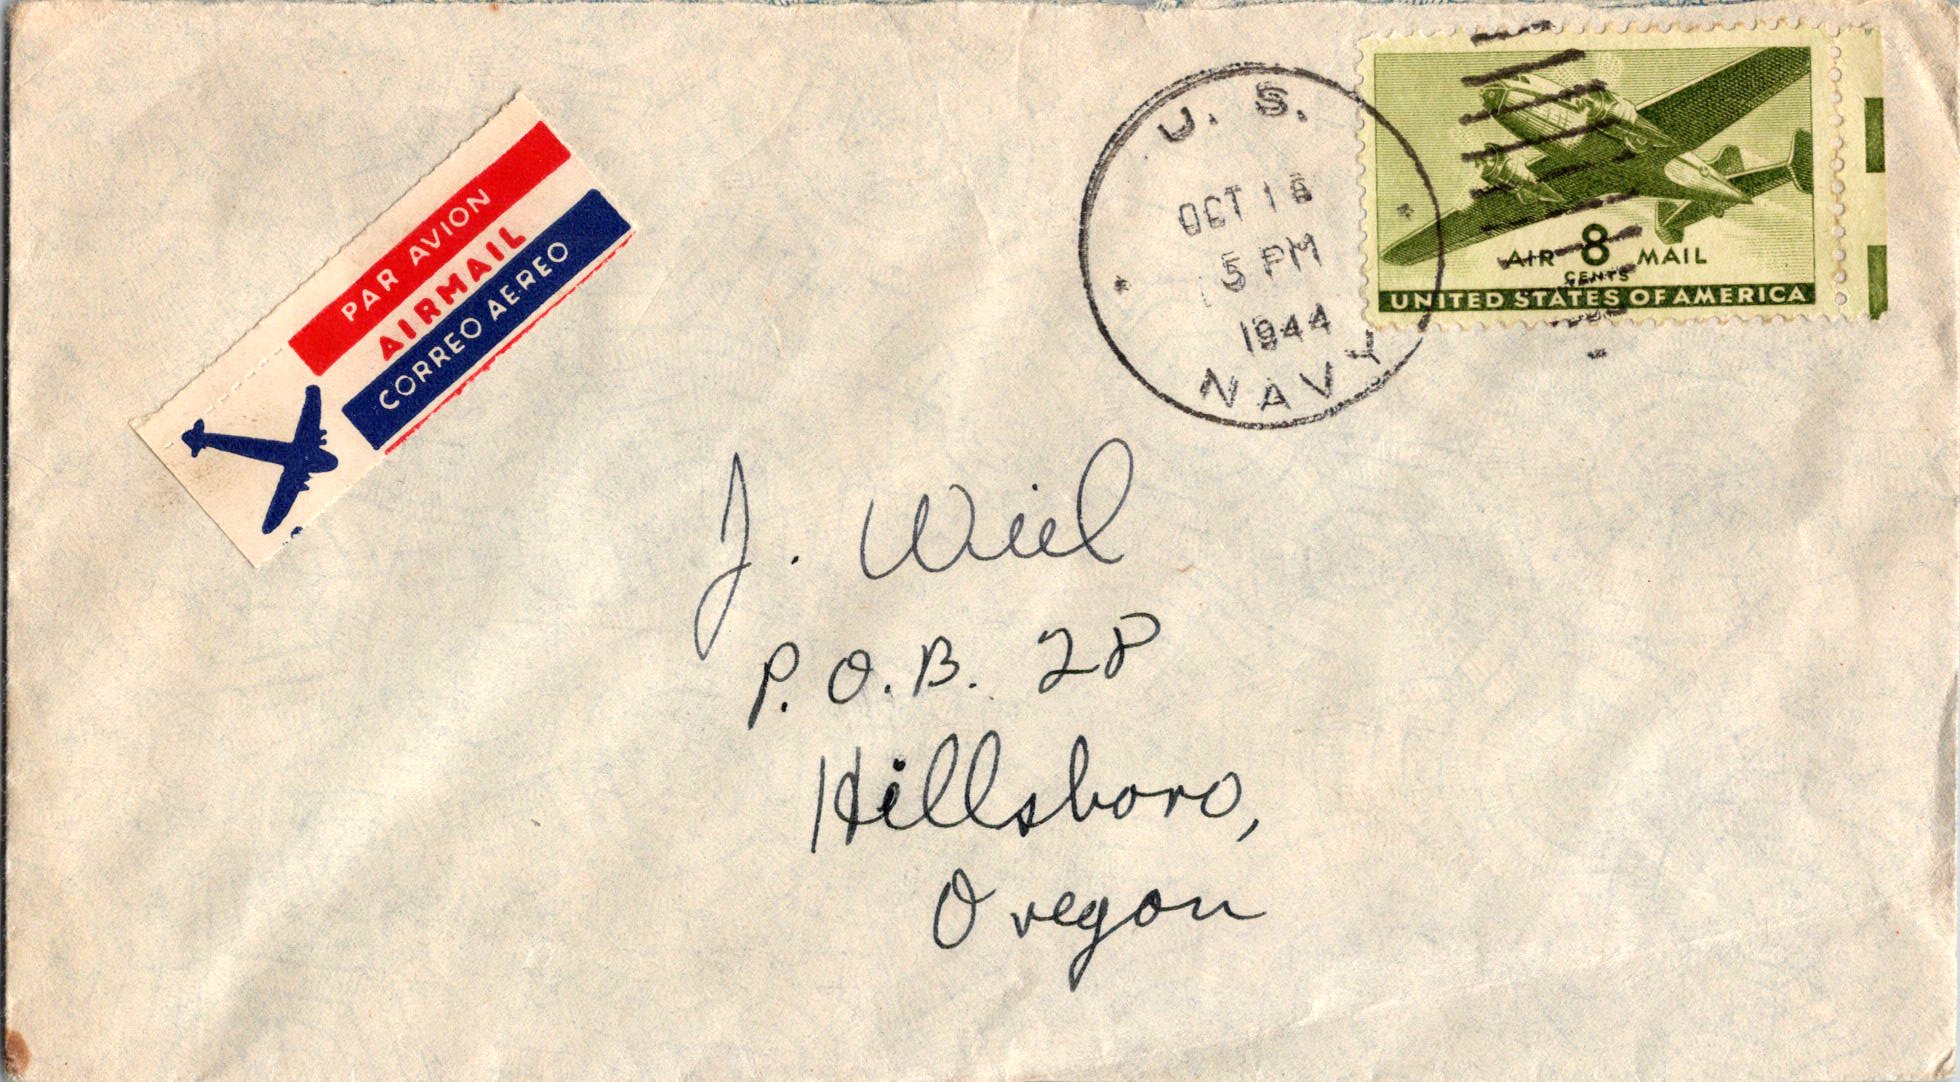 PAR AVION
AIRMAIL
CORREO AEREO
U. S.
OCT
5 PM
1944
NAVY
AIR 8 MAIL
CENTS
UNITED STATES OF AMERICA
J. Wiel
P.O.B. 28
Hillsboro,
Oregon